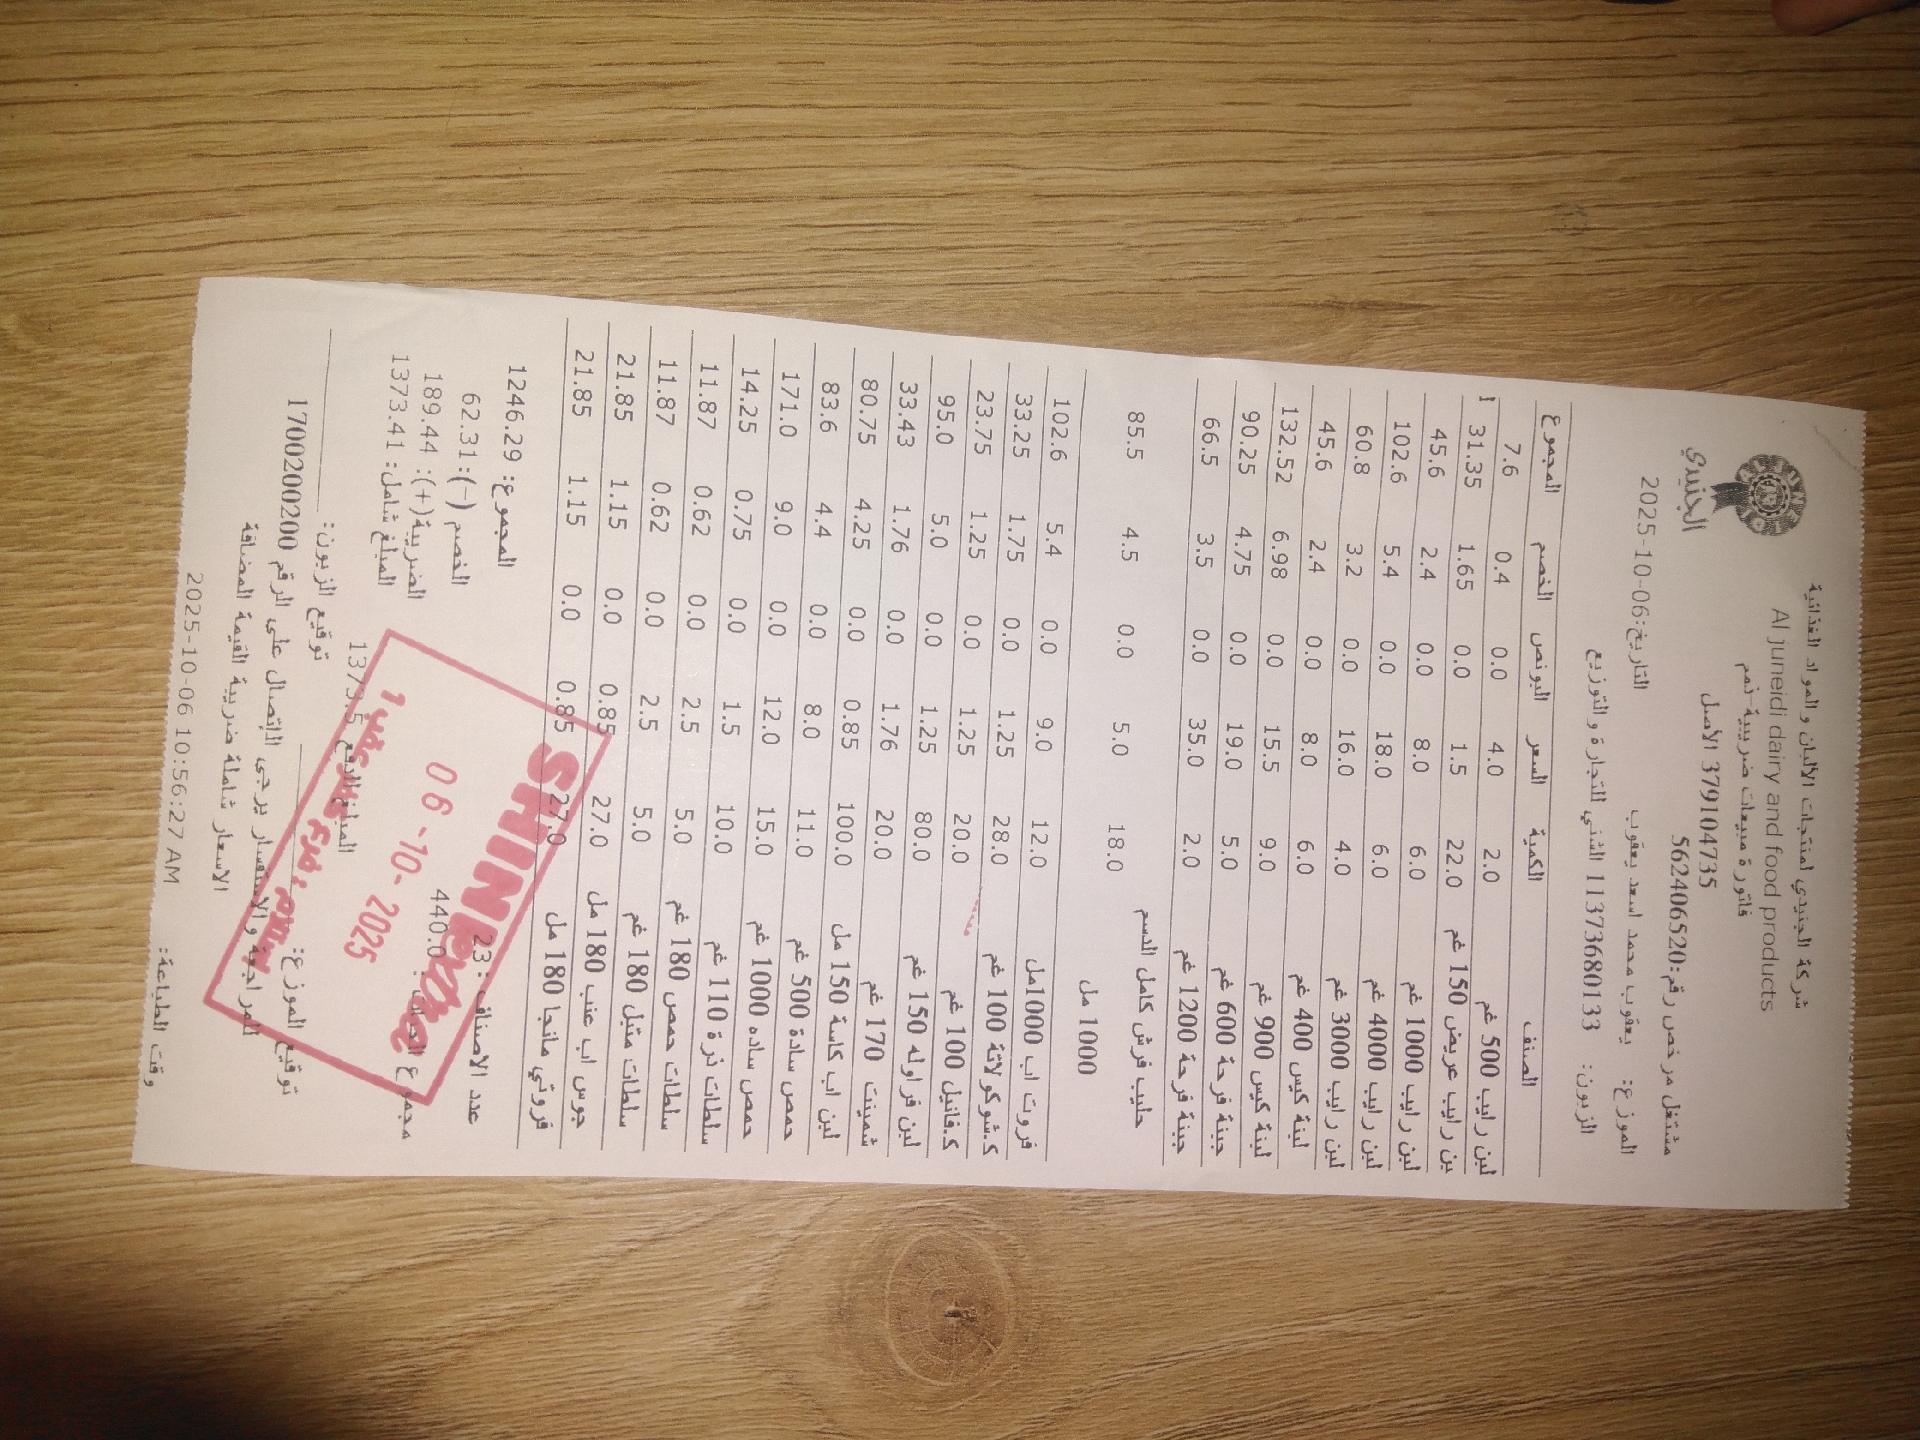 شركة الجنيدي لمنتجات الألبان والمواد الغذائية
Al juneidi dairy and food products
فاتورة مبيعات ضريبية-ذمم
379104735 الأصل
مشتغل مرخص رقم:562406520
الجنيدي
التاريخ:2025-10-06
الموزع: يعقوب محمد اسعد يعقوب
الزبون: 1137368013 الشني للتجارة والتوزيع
الصنف الكمية السعر البونص الخصم المجموع
لبن رايب 500 غم 2.0 4.0 0.0 0.4 7.6
بن رايب عريض 150 غم 22.0 1.5 0.0 1.65 31.35
لبن رايب 1000 غم 6.0 8.0 0.0 2.4 45.6
لبن رايب 4000 غم 6.0 18.0 0.0 5.4 102.6
لبن رايب 3000 غم 4.0 16.0 0.0 3.2 60.8
لبنة كيس 400 غم 6.0 8.0 0.0 2.4 45.6
لبنة كيس 900 غم 9.0 15.5 0.0 6.98 132.52
جبنة فرحة 600 غم 5.0 19.0 0.0 4.75 90.25
جبنة فرحة 1200 غم 2.0 35.0 0.0 3.5 66.5
حليب فرش كامل الدسم 18.0 5.0 0.0 4.5 85.5
1000 مل
فروت اب 1000مل 12.0 9.0 0.0 5.4 102.6
ك.شوكولاتة 100 غم 28.0 1.25 0.0 1.75 33.25
ك.فانيل 100 غم 20.0 1.25 0.0 1.25 23.75
لبن فراوله 150 غم 80.0 1.25 0.0 5.0 95.0
شمينت 170 غم 20.0 1.76 0.0 1.76 33.43
لبن اب كاسة 150 مل 100.0 0.85 0.0 4.25 80.75
حمص سادة 500 غم 11.0 8.0 0.0 4.4 83.6
حمص ساده 1000 غم 15.0 12.0 0.0 9.0 171.0
سلطات ذرة 110 غم 10.0 1.5 0.0 0.75 14.25
سلطات حمص 180 غم 5.0 2.5 0.0 0.62 11.87
سلطات متبل 180 غم 5.0 2.5 0.0 0.62 11.87
جوس اب عنب 180 مل 27.0 0.85 0.0 1.15 21.85
فروتي مانجا 180 مل 27.0 0.85 0.0 1.15 21.85
عدد الاصناف: 23 المجموع: 1246.29
الخصم (-): 62.31
مجموع 440.0 الضريبة(+): 189.44
المبلغ شامل: 1373.41
المبلغ 1373.5
SHINI
06-10-2025
توقيع الموزع: توقيع الزبون:
للمراجعة والاستفسار يرجى الإتصال على الرقم 1700200200
الاسعار شاملة ضريبة القيمة المضافة
وقت الطباعة: 2025-10-06 10:56:27 AM